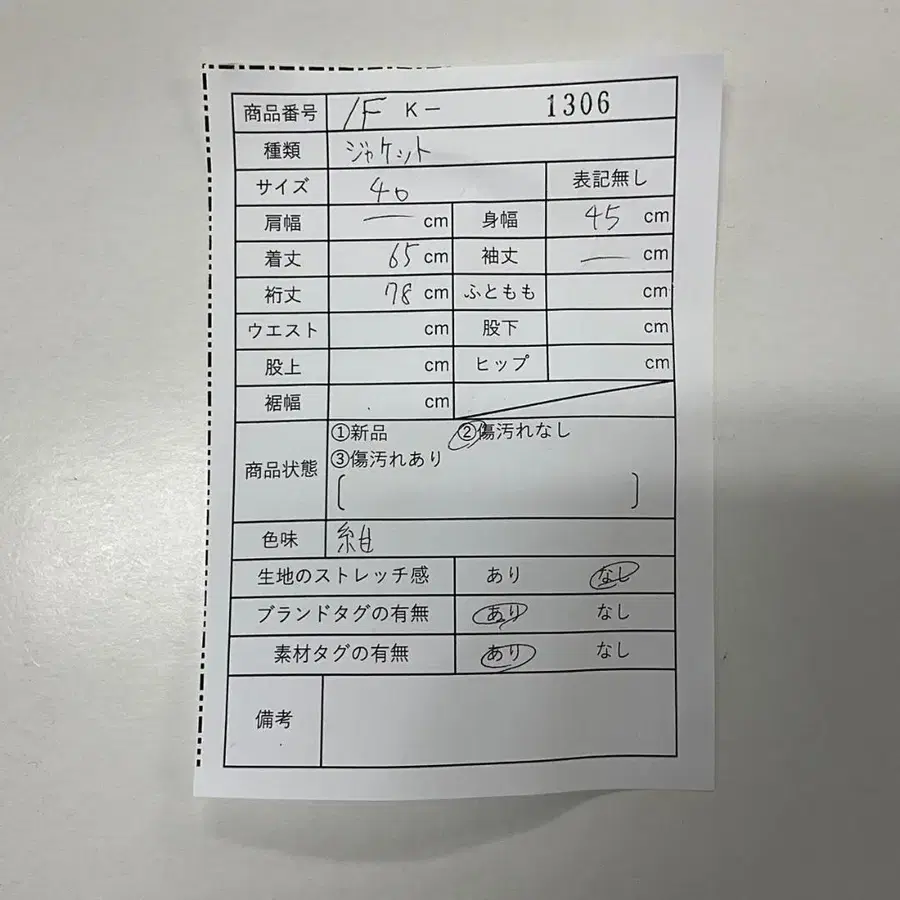 商品番号 1F K- 1306
種類 ジャケット
サイズ 40 表記無し
肩幅 — cm 身幅 45 cm
着丈 65 cm 袖丈 — cm
裄丈 78 cm ふともも cm
ウエスト cm 股下 cm
股上 cm ヒップ cm
裾幅 cm
商品状態 ①新品 ②傷汚れなし
③傷汚れあり
[ ]
色味 紺
生地のストレッチ感 あり なし
ブランドタグの有無 あり なし
素材タグの有無 あり なし
備考